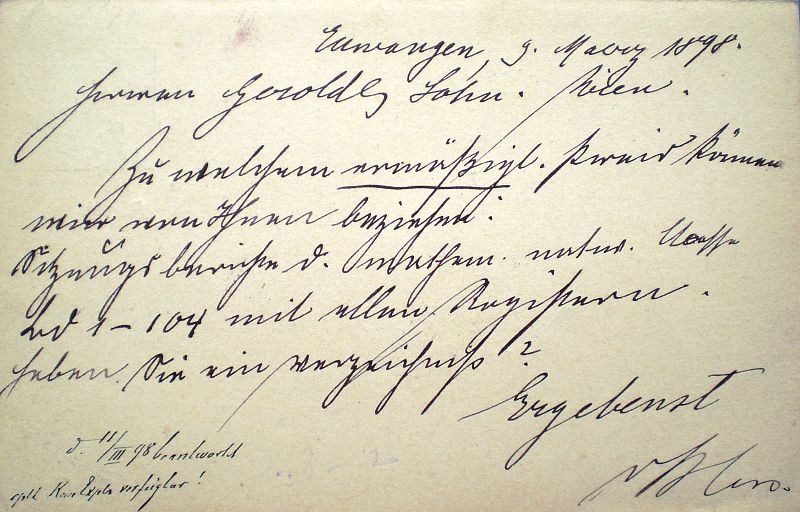 Ellwangen, 9. Maerz 1898.
Herren Gerolds Sohn. Wien.
Zu welchem ermäßigt. Preis können
wir von Ihnen beziehen:
Sitzungsberichte d. mathem. naturw. Classe
Bd 1–104 mit allen Registern.
Haben Sie ein Verzeichniß?
Ergebenst
d. 11/III 98 beantwortet
kein Expl verfügbar!